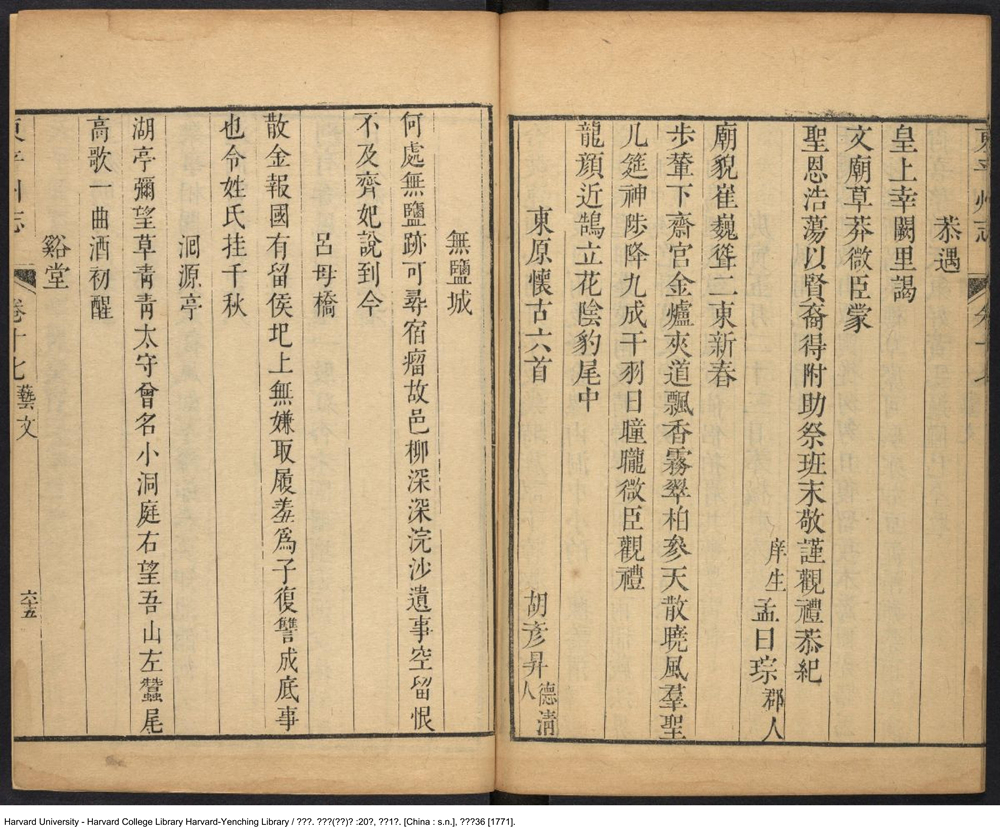 恭遇
皇上幸闕里謁
文廟草莽微臣蒙
聖恩浩蕩以賢裔得附助祭班末敬謹觀禮恭紀
庠生孟日琮郡人
廟貌崔巍聳二東新春
步輦下齋宮金爐夾道飄香霧翠柏參天散曉風羣聖
几筵神陟降九成干羽日曈曨微臣觀禮
龍顔近鵠立花陰豹尾中
東原懷古六首
胡彥昇德清人
無鹽城
何處無鹽跡可尋宿瘤故邑柳深深浣沙遺事空留恨
不及齊妃說到今
呂母橋
散金報國有留侯圯上無嫌取履羞爲子復讐成底事
也令姓氏挂千秋
洞源亭
湖亭彌望草青青太守曾名小洞庭右望吾山左蠶尾
高歌一曲酒初醒
谿堂
東平州志
卷十七
藝文
六十五
Harvard University - Harvard College Library Harvard-Yenching Library / ???. ???(??)? :20?, ??1?. [China : s.n.], ???36 [1771].